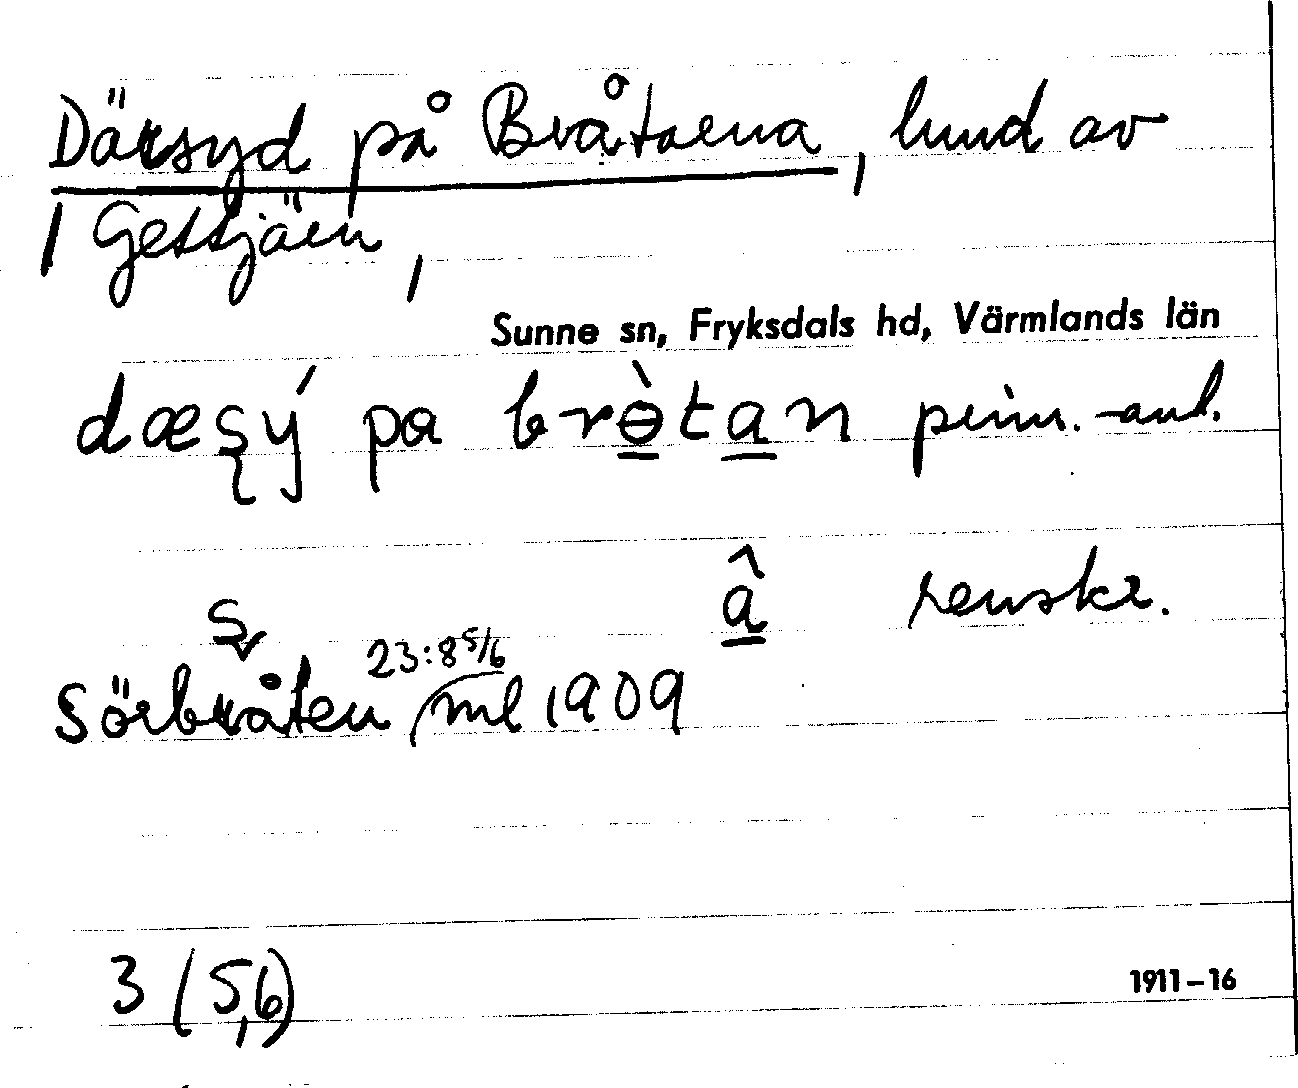 Därsyd på Bråtarna, hmd av
/ Gettjärn,
Sunne sn, Fryksdals hd, Värmlands län
dæşý pa brètan prim.-ant.
ş â renskr.
23:8 5/6
Sörbråten ml 1909
3 (5,6)
1911-16